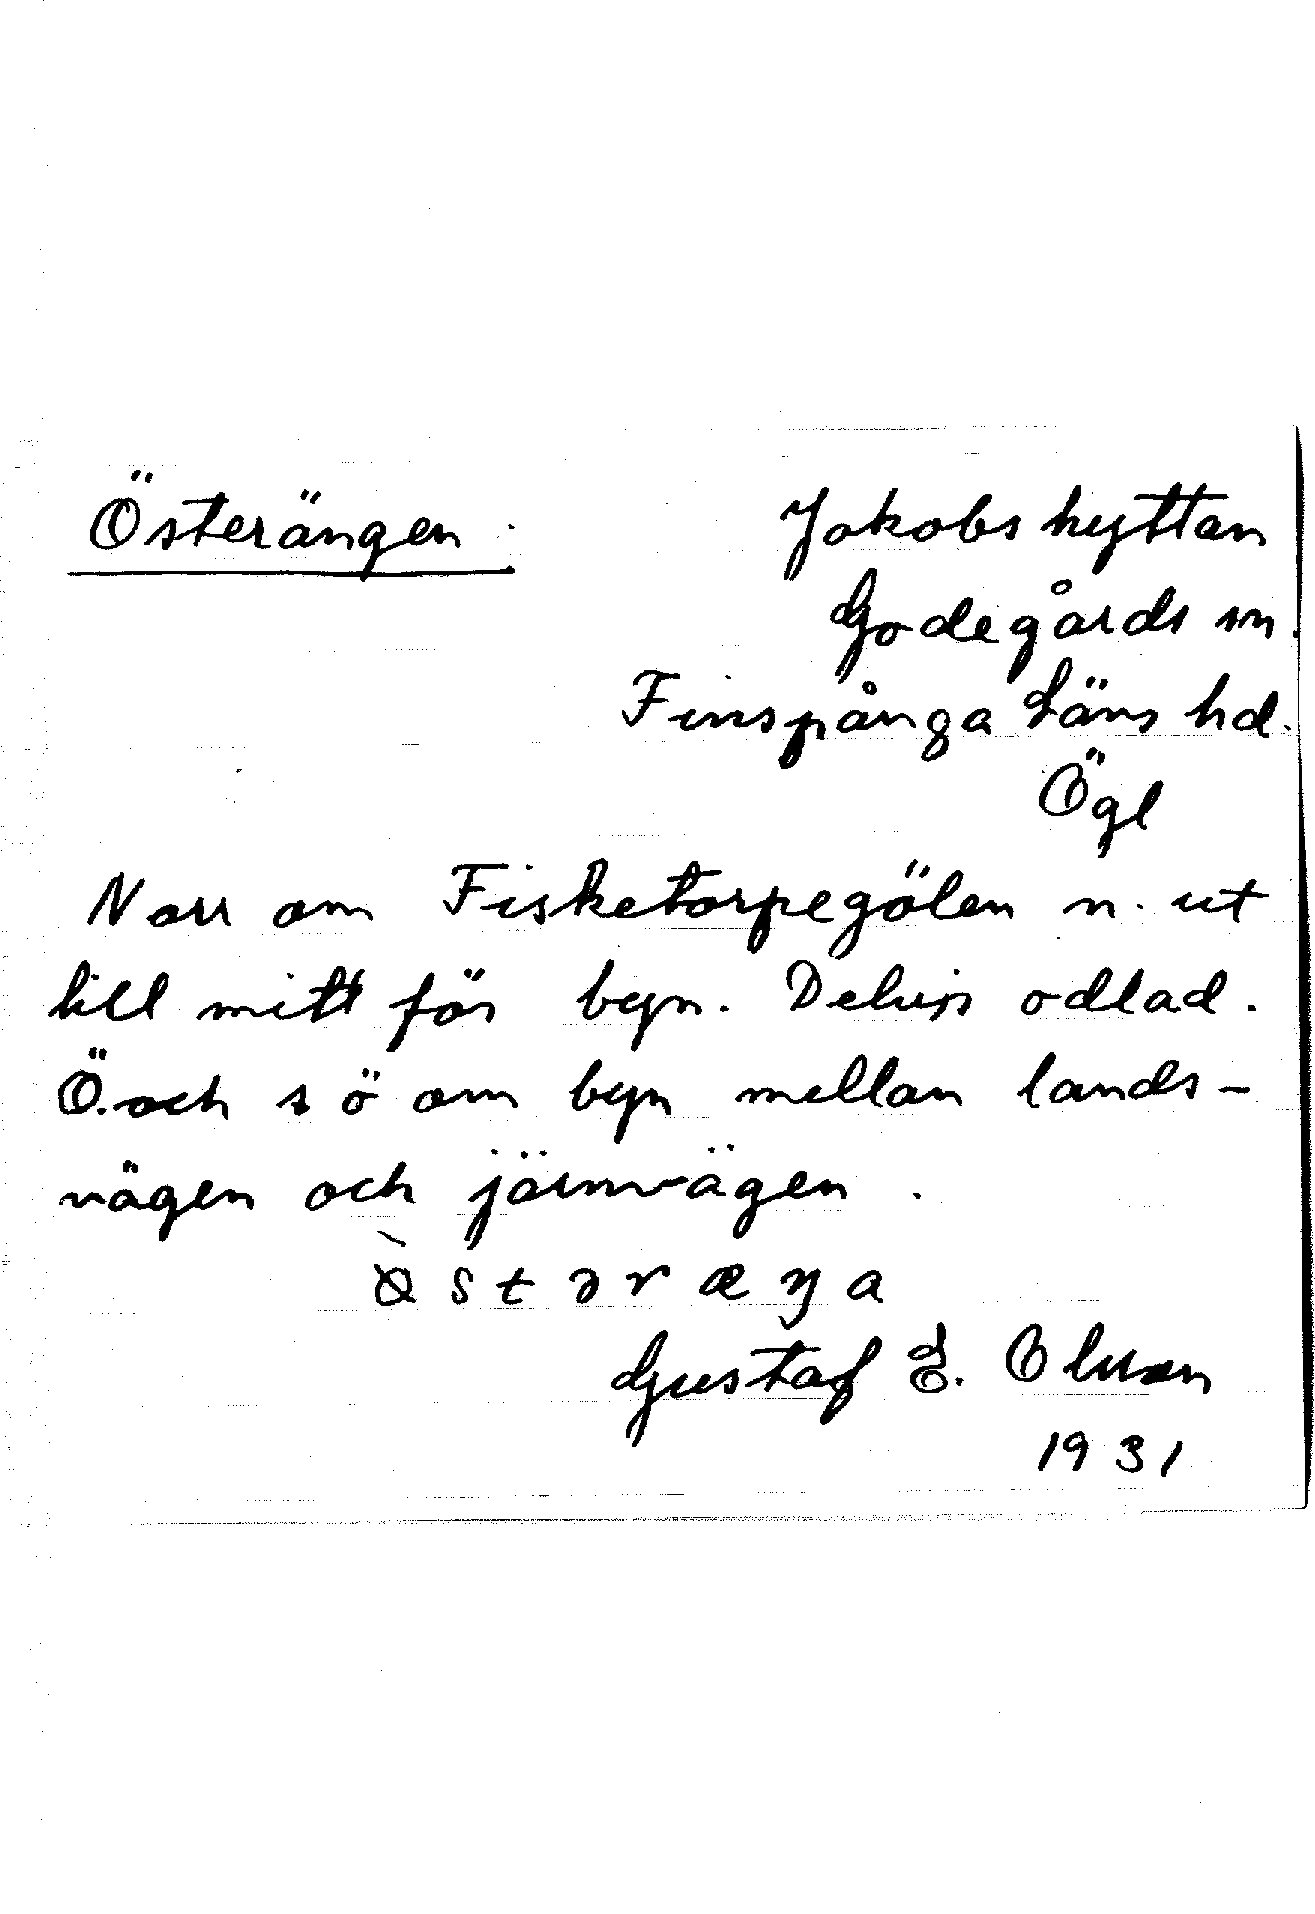 Österängen.
Jakobshyttan
Godegårds sn.
Finspånga Läns hd.
Ögl
Norr om Fisketorpegölen n. ut
till mitt för byn. Delvis odlad.
Ö. och s ö om byn mellan lands-
vägen och järnvägen.
Gustaf E. Olsson
1931